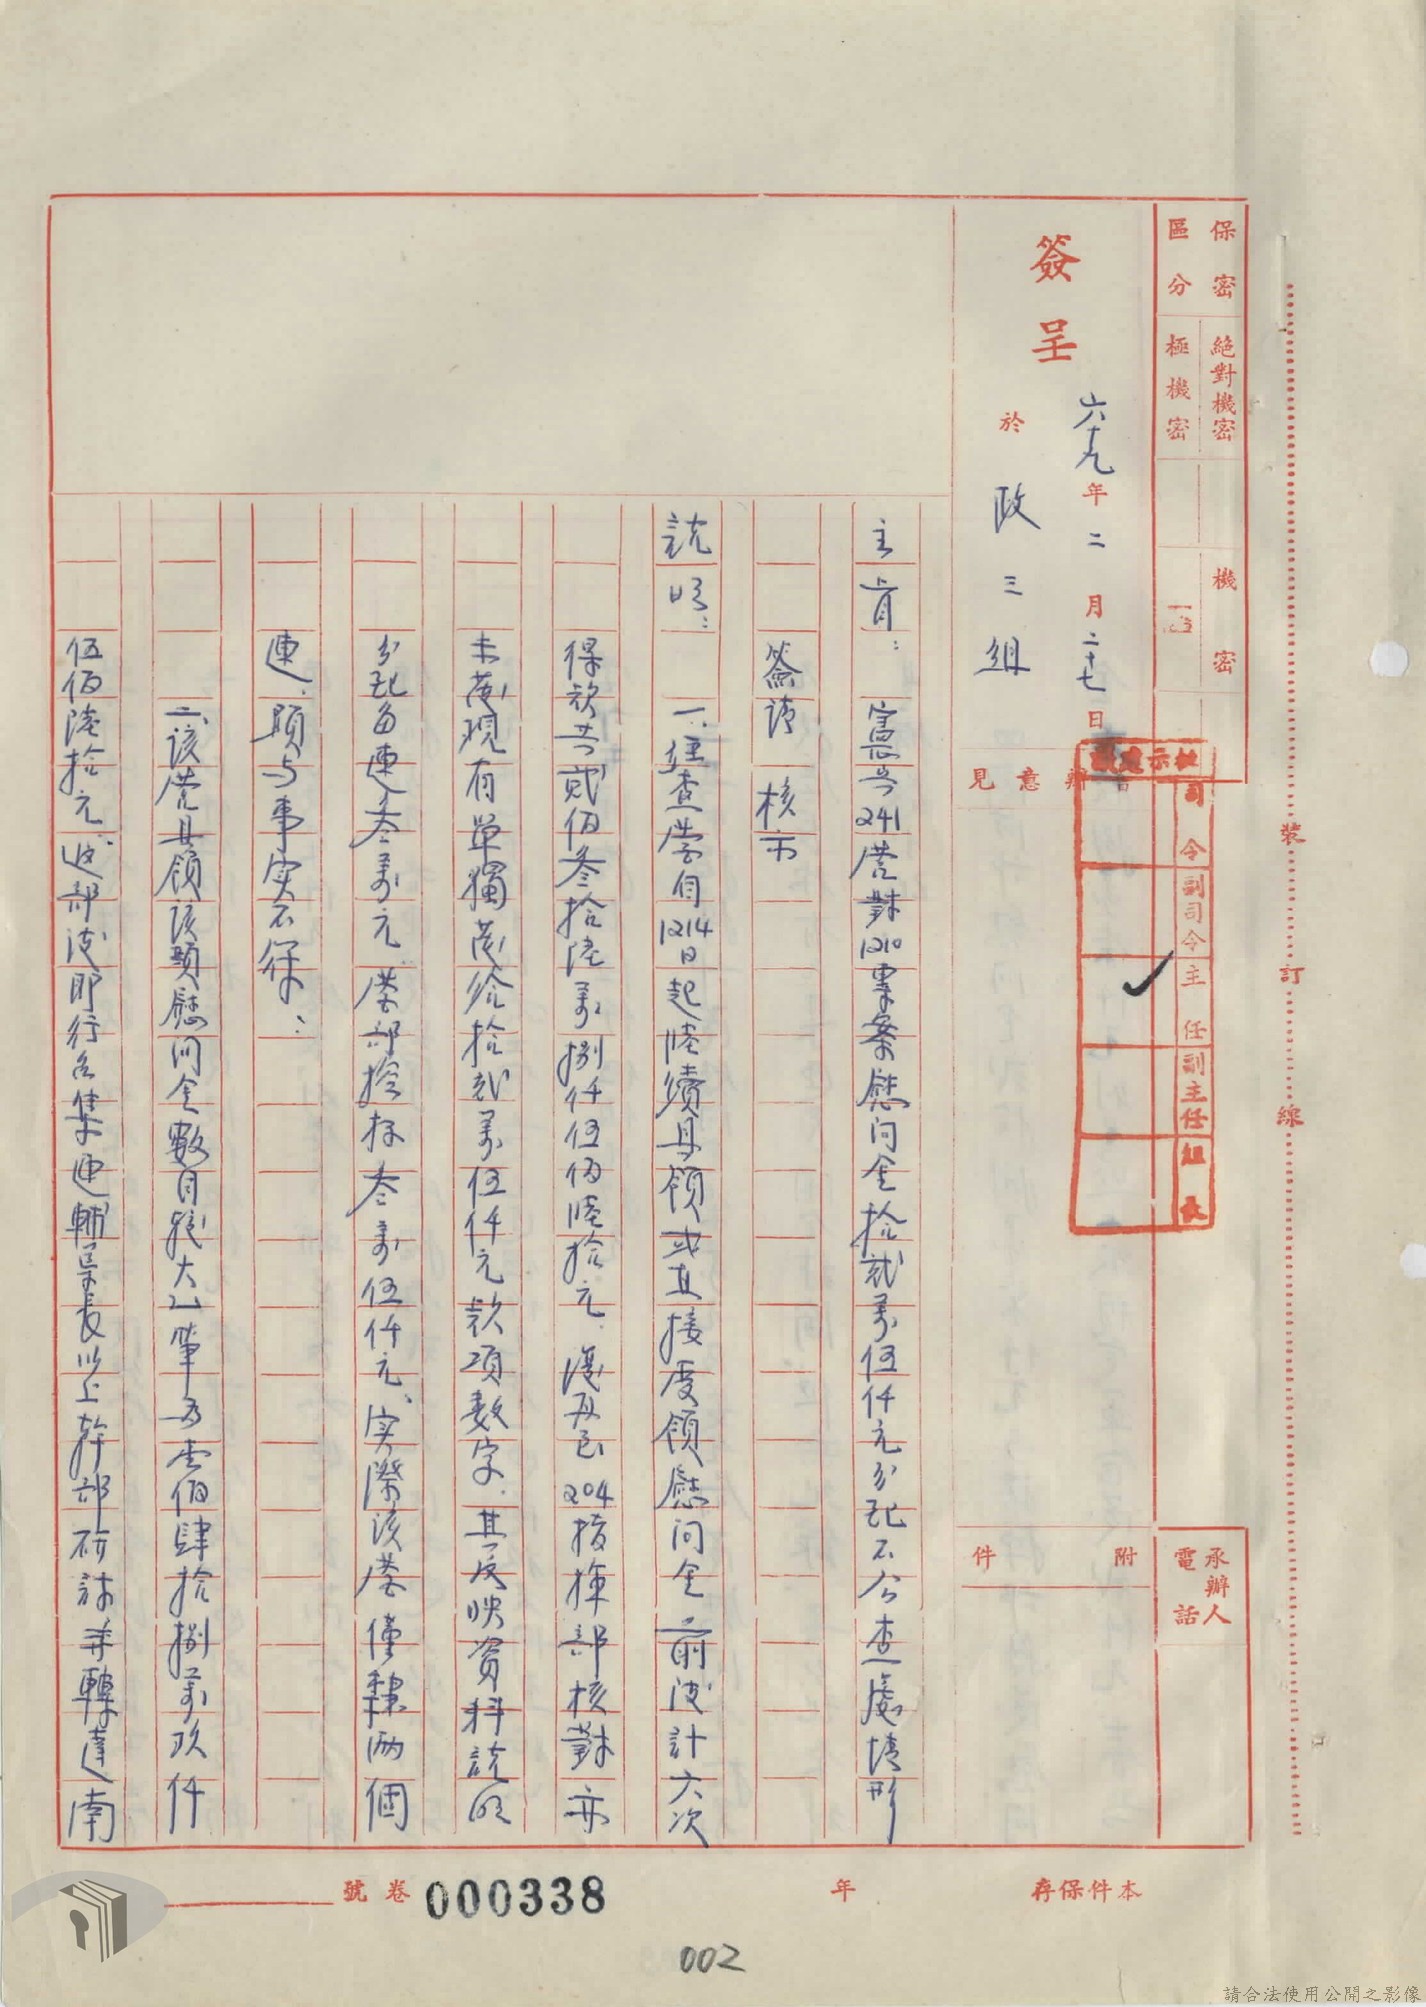 保密 絕對機密 機密
區分 極機密
承辦人
電話
簽呈
六十九年二月二十七日
於 政三組
批示
司令 副司令 主任 副主任 組長
擬辦意見
附件
主旨：憲兵241營對1210專案慰問金拾貳萬伍仟元分配不公查處情形
簽請 核示
說明：一、經查營自1214日起陸續具領或直接受領慰問金前後計六次
得款共貳佰叁拾陸萬捌仟伍佰陸拾元，復再向204指揮部核對亦
未發現有單獨發給拾貳萬伍仟元款項數字，其反映資料說明
分配每連叁萬元，營部撿存叁萬伍仟元，实際該營僅轄兩個
連，顯与事实不符：
二、該營具領該類慰問金數目較大乙筆為壹佰肆拾捌萬玖仟
伍佰陸拾元，返部後即行召集連輔導長以上幹部研討並轉達南
裝
訂
線
本件保存 年
卷號 000338
002
請合法使用公開之影像